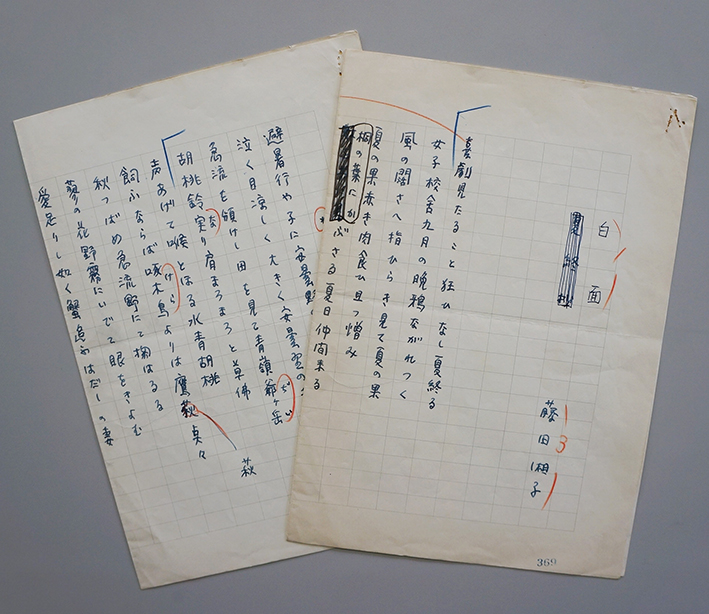 八
白面
藤田湘子
3
喜劇見たること狂ひなし夏終る
女子校舎九月の晩鴉ながれつく
風の闊さへ指ひらき見て夏の果
夏の果赤き肉食ひ且つ憎み
桐の葉にかぶさる夏日仲間来る
369
避暑行や子に安曇野
泣く目涼しく大きく安曇
急流を傾けし田を見て青嶺爺ヶ岳
ぢい
胡桃鈴実り肩まろまろと草佛
な
声あげて喉とほる水青胡桃
飼ふならば啄木鳥よりは鷹
けら
萩
秋つばめ急流野にて掬はるる
蓼の花野霧にいでて眼をきよむ
愛足りし如く蟹追ふはだしの妻